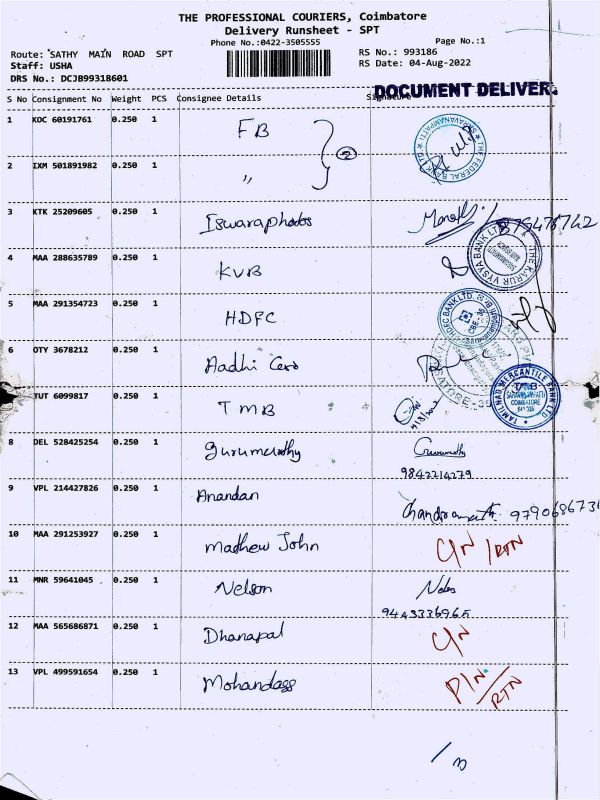 THE PROFESSIONAL COURIERS, Coimbatore
Delivery Runsheet - SPT
Phone No.:0422-3505555
Page No.:1
Route: SATHY MAIN ROAD SPT
RS No.: 993186
Staff: USHA
RS Date: 04-Aug-2022
DRS No.: DCJB99318601
DOCUMENT DELIVER
S No Consignment No Weight PCS Consignee Details Signature
1 KOC 60191761 0.250 1 FB
THE FEDERAL BANK LTD. SARAVANAMPATTI
2 IXM 501891982 0.250 1 〃
2
3 KTK 25209605 0.250 1 Iswaraphotos
4 MAA 288635789 0.250 1 KVB
THE KARUR VYSYA BANK LTD
5 MAA 291354723 0.250 1 HDFC
HDFC BANK LTD.
6 OTY 3678212 0.250 1 Aadhi Cero
TUT 6099817 0.250 1 TMB
TAMILNAD MERCANTILE BANK LTD
TMB
COIMBATORE
641 035
8 DEL 528425254 0.250 1 Gurumurthy Gurumurthy
9842214279
9 VPL 214427826 0.250 1 Anandan
9790686736
10 MAA 291253927 0.250 1 Mathew John C/N /RTN
11 MNR 59641045 0.250 1 Nelson
9443336965
12 MAA 565686871 0.250 1 Dhanapal C/N
13 VPL 499591654 0.250 1 Mohandass P/N/RTN